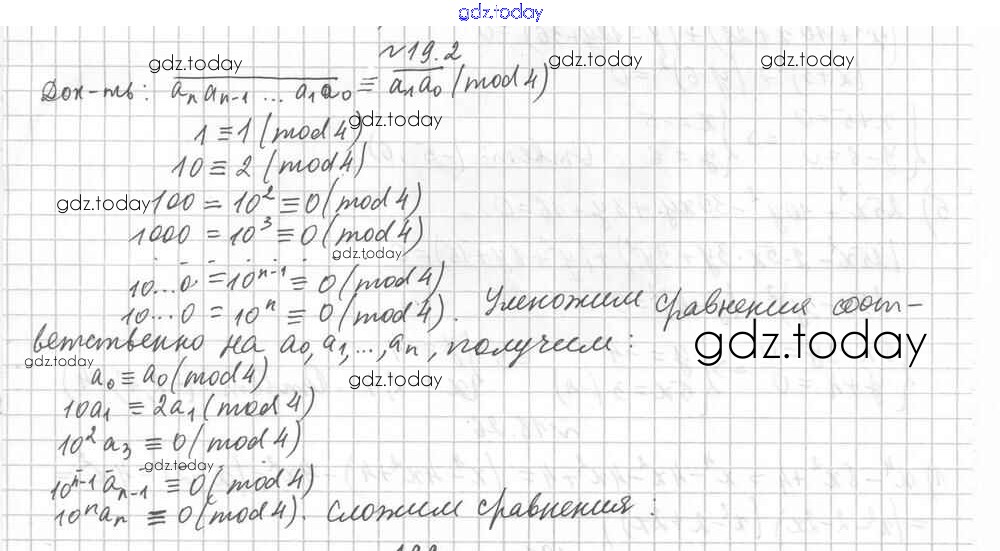 gdz.today
№19.2
gdz.today gdz.today gdz.today
Док-ть: aₙ aₙ₋₁ ... a₁a₀ ≡ a₁a₀ (mod 4)
gdz.today
1 ≡ 1 (mod 4)
10 ≡ 2 (mod 4)
gdz.today 100 = 10² ≡ 0 (mod 4)
1000 = 10³ ≡ 0 (mod 4)
gdz.today
10...0 = 10ⁿ⁻¹ ≡ 0 (mod 4)
10...0 = 10ⁿ ≡ 0 (mod 4). Умножим сравнения соот-
ветственно на a₀, a₁, ..., aₙ, получим:
gdz.today
gdz.today
a₀ ≡ a₀ (mod 4)
gdz.today
10a₁ ≡ 2a₁ (mod 4)
10² a₃ ≡ 0 (mod 4)
gdz.today
10ⁿ⁻¹ aₙ₋₁ ≡ 0 (mod 4)
10ⁿaₙ ≡ 0 (mod 4). Сложим сравнения: